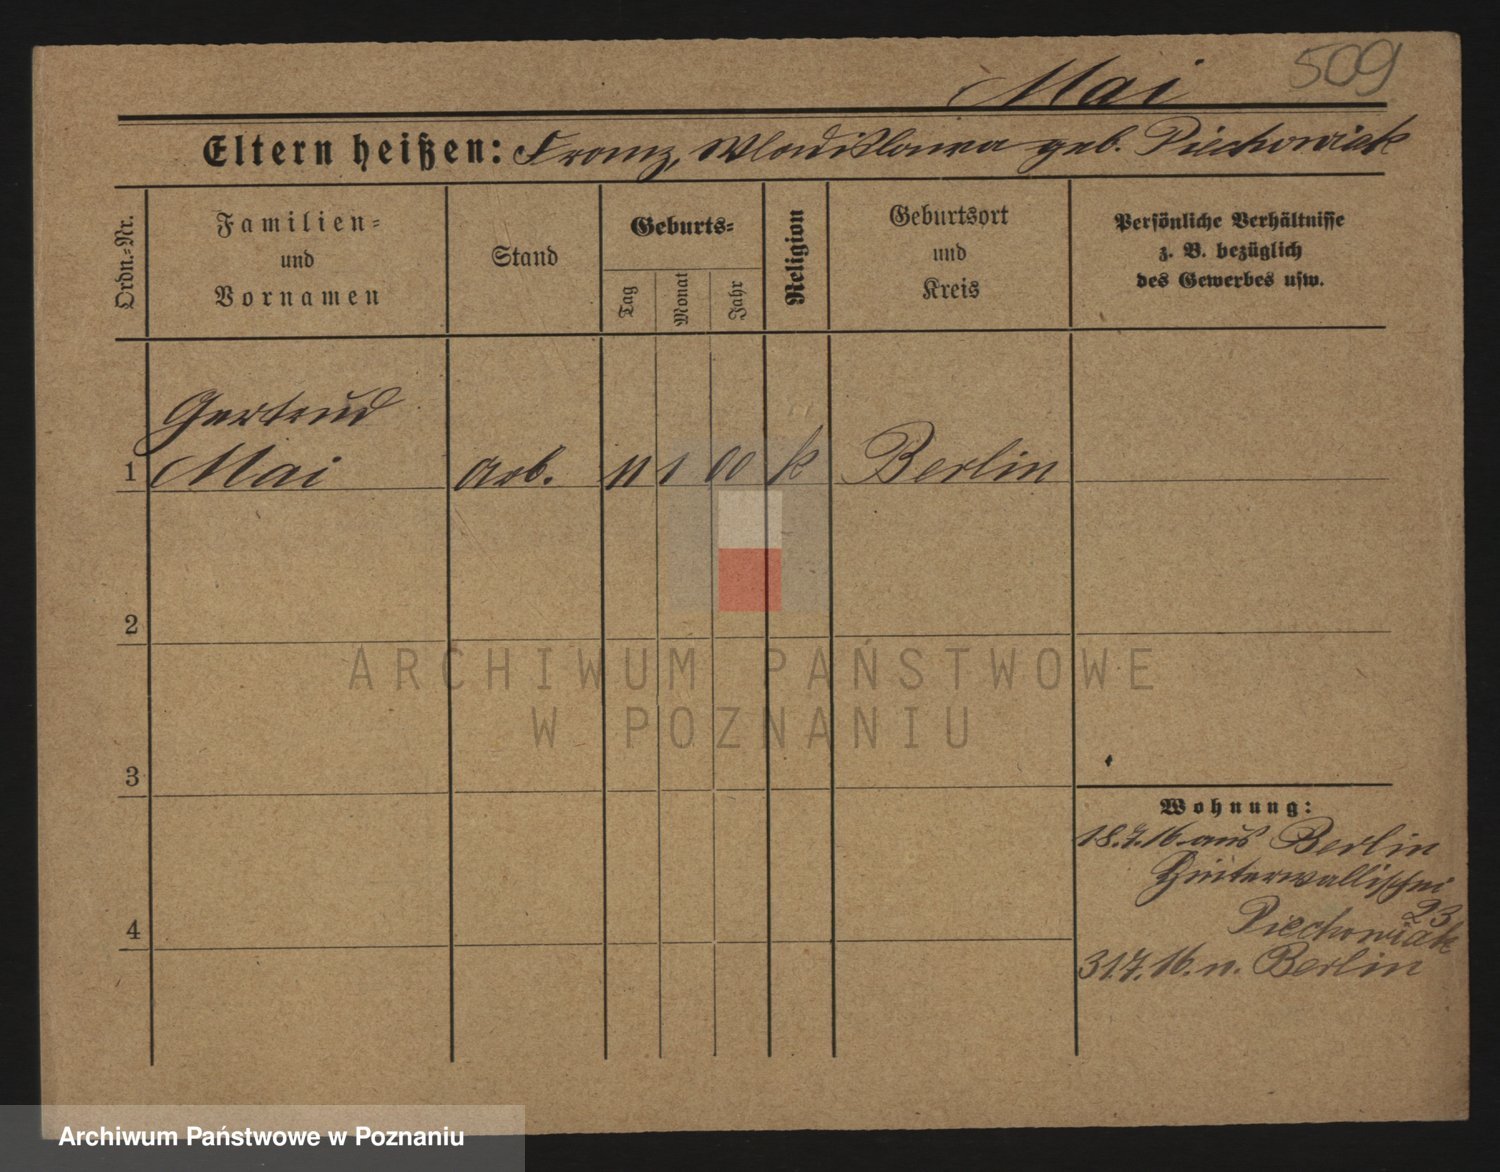 509
Mai
Eltern heißen: Franz, Wladislawa geb. Piechowiak
Ordn.-Nr.
Familien-
und
Vornamen
Stand
Geburts-
Tag
Monat
Jahr
Religion
Geburtsort
und
Kreis
Persönliche Verhältnisse
z. B. bezüglich
des Gewerbes usw.
Gertrud
1 Mai arb. 11 1 00 k Berlin
2
3
4
Wohnung:
18.7.16. aus Berlin
Hinterwallischei
23
Piechowiak
31.7.16. n. Berlin
ARCHIWUM PAŃSTWOWE
W POZNANIU
Archiwum Państwowe w Poznaniu